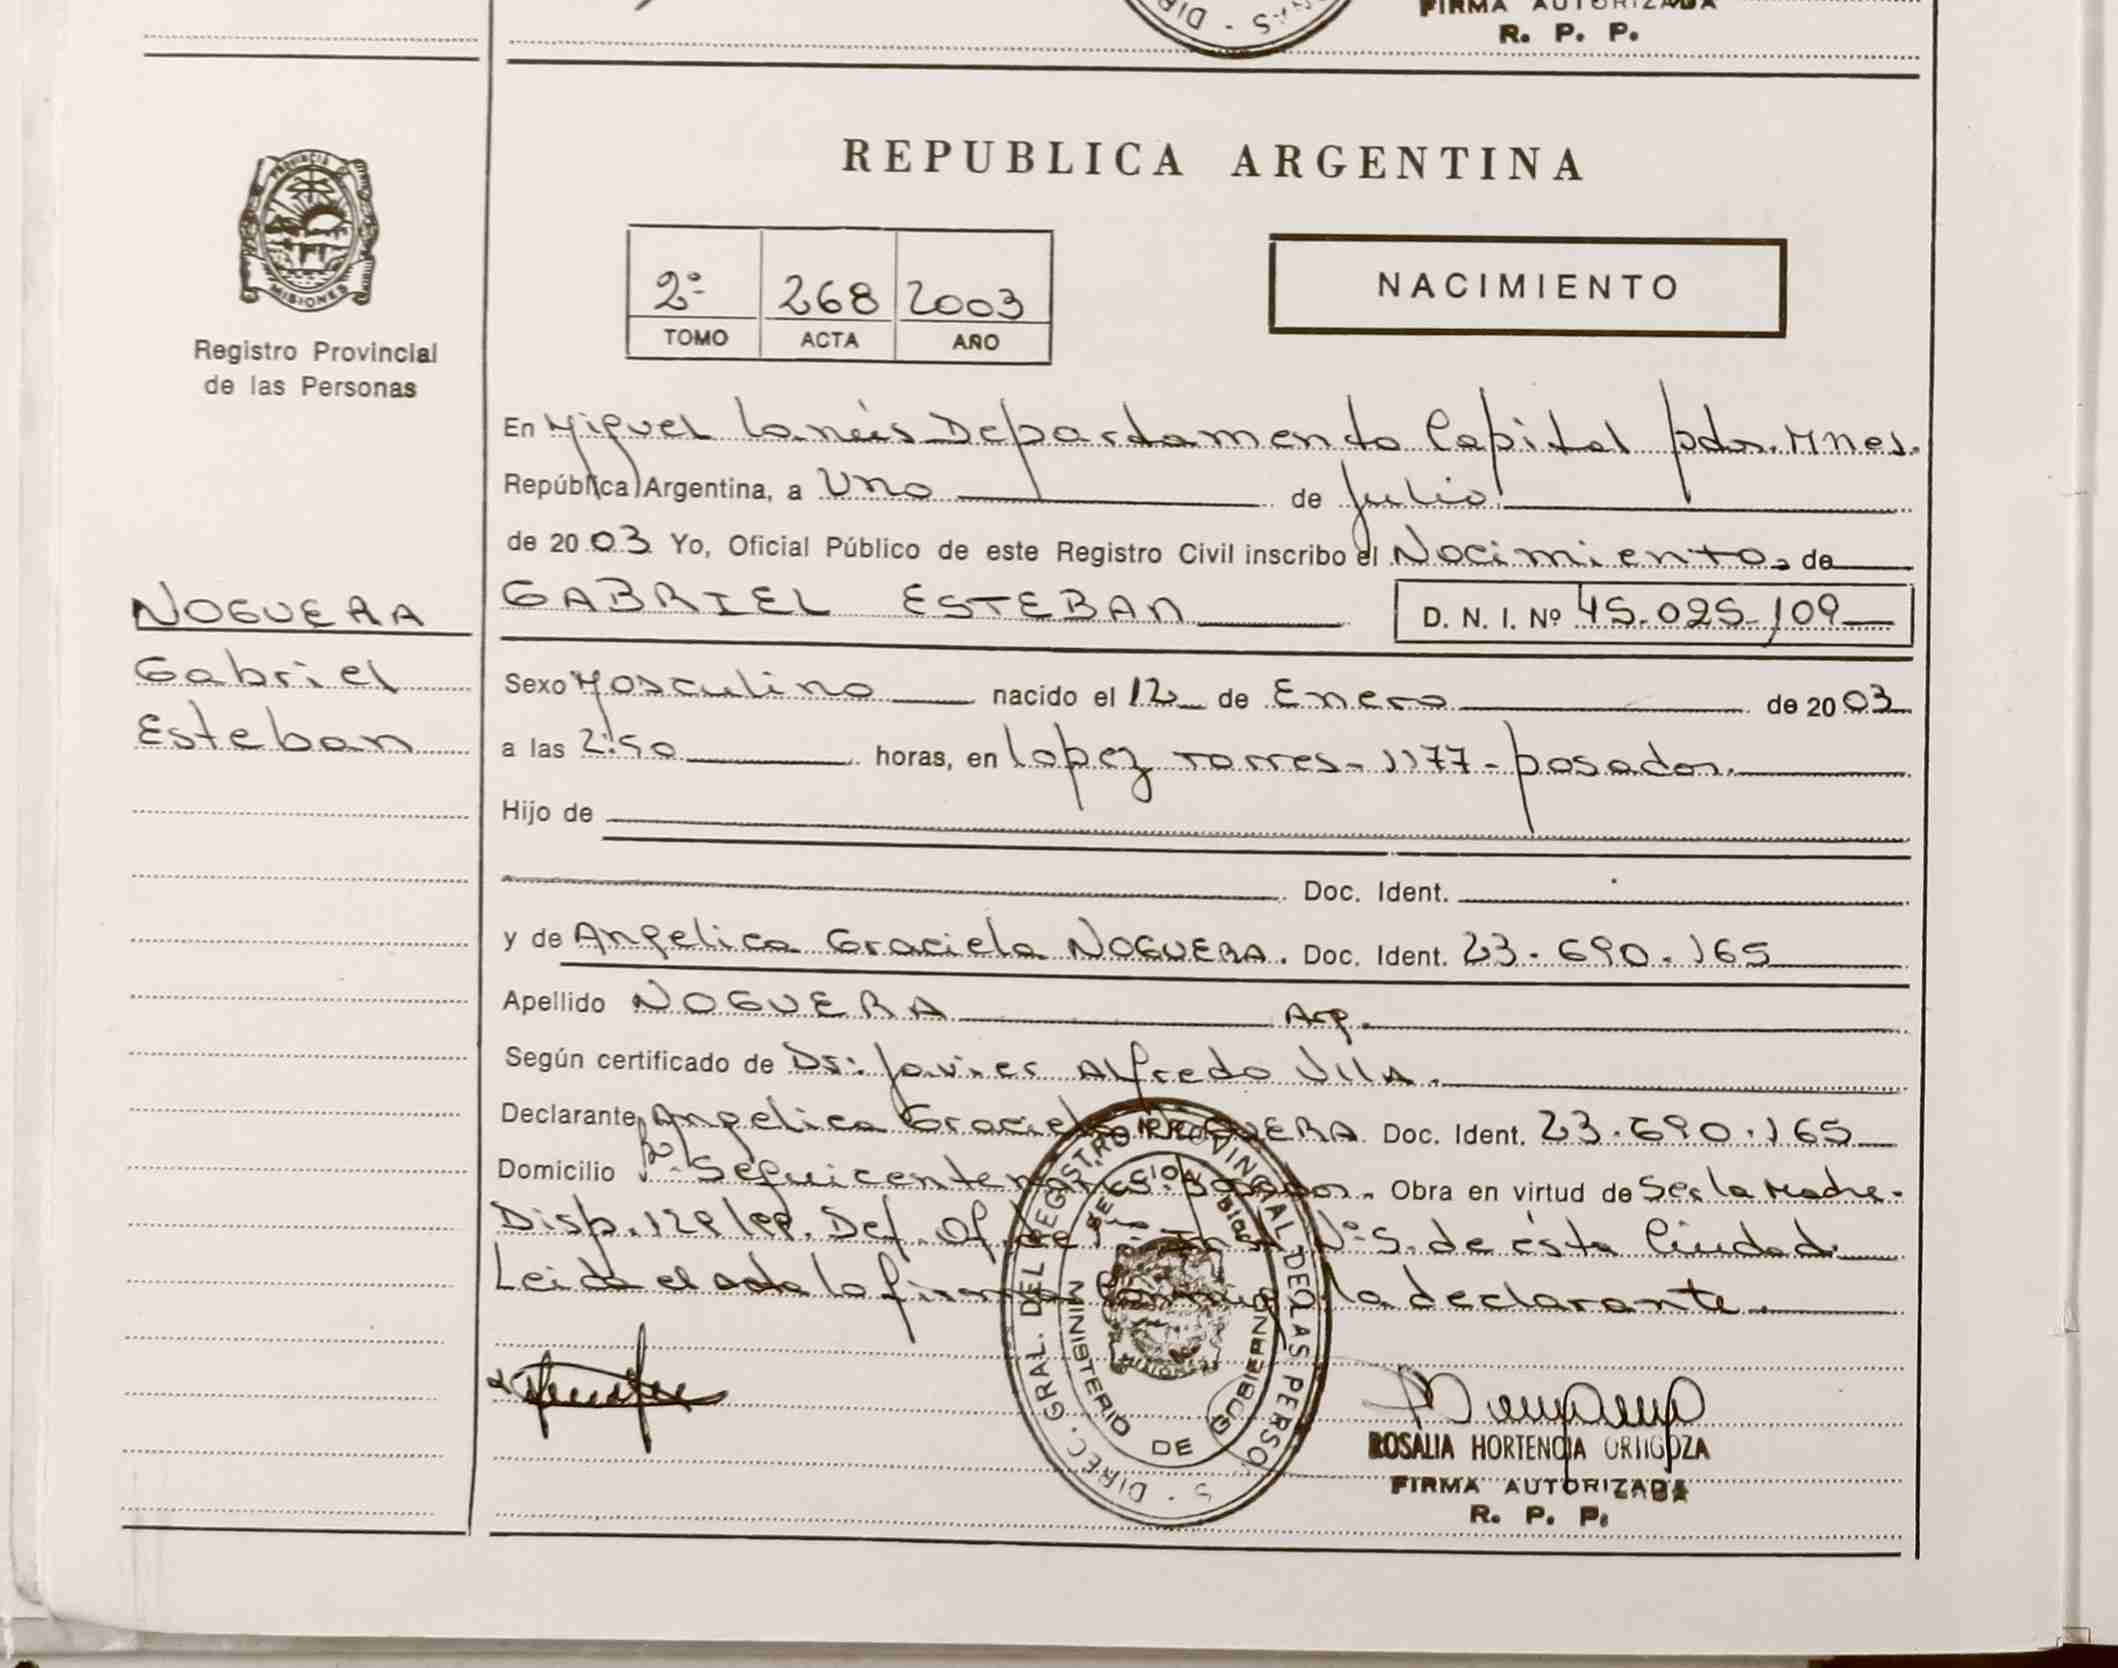 FIRMA AUTORIZADA
R. P. P.
PROVINCIA
MISIONES
Registro Provincial
de las Personas
REPUBLICA ARGENTINA
2º 268 2003
TOMO ACTA AÑO
NACIMIENTO
En Miguel Lanús Departamento Capital pdas. Mnes.
República Argentina, a Uno de Julio
de 2003 Yo, Oficial Público de este Registro Civil inscribo el Nacimiento de
NOGUERA
Gabriel
Esteban
GABRIEL ESTEBAN D. N. I. Nº 45.025.109
Sexo Masculino nacido el 12 de Enero de 2003
a las 2:50 horas, en Lopez Torres - 1177 - posadas.
Hijo de
Doc. Ident.
y de Angelica Graciela NOGUERA. Doc. Ident. 23.690.165
Apellido NOGUERA Arg.
Según certificado de Dr: Javier Alfredo VIlA.
Declarante Angelica Graciela NOGUERA Doc. Ident. 23.690.165
Domicilio Bº Sequicentenario Posadas. Obra en virtud de Ser la Madre.
Disp. Def. Of. de Nº 5. de ésta Ciudad
Leida el acta la firma Conmigo la declarante.
DIREC. GRAL. DEL REGISTRO PROVINCIAL DE LAS PERSONAS
MINISTERIO DE GOBIERNO
ROSALIA HORTENCIA ORTIGOZA
FIRMA AUTORIZADA
R. P. P.